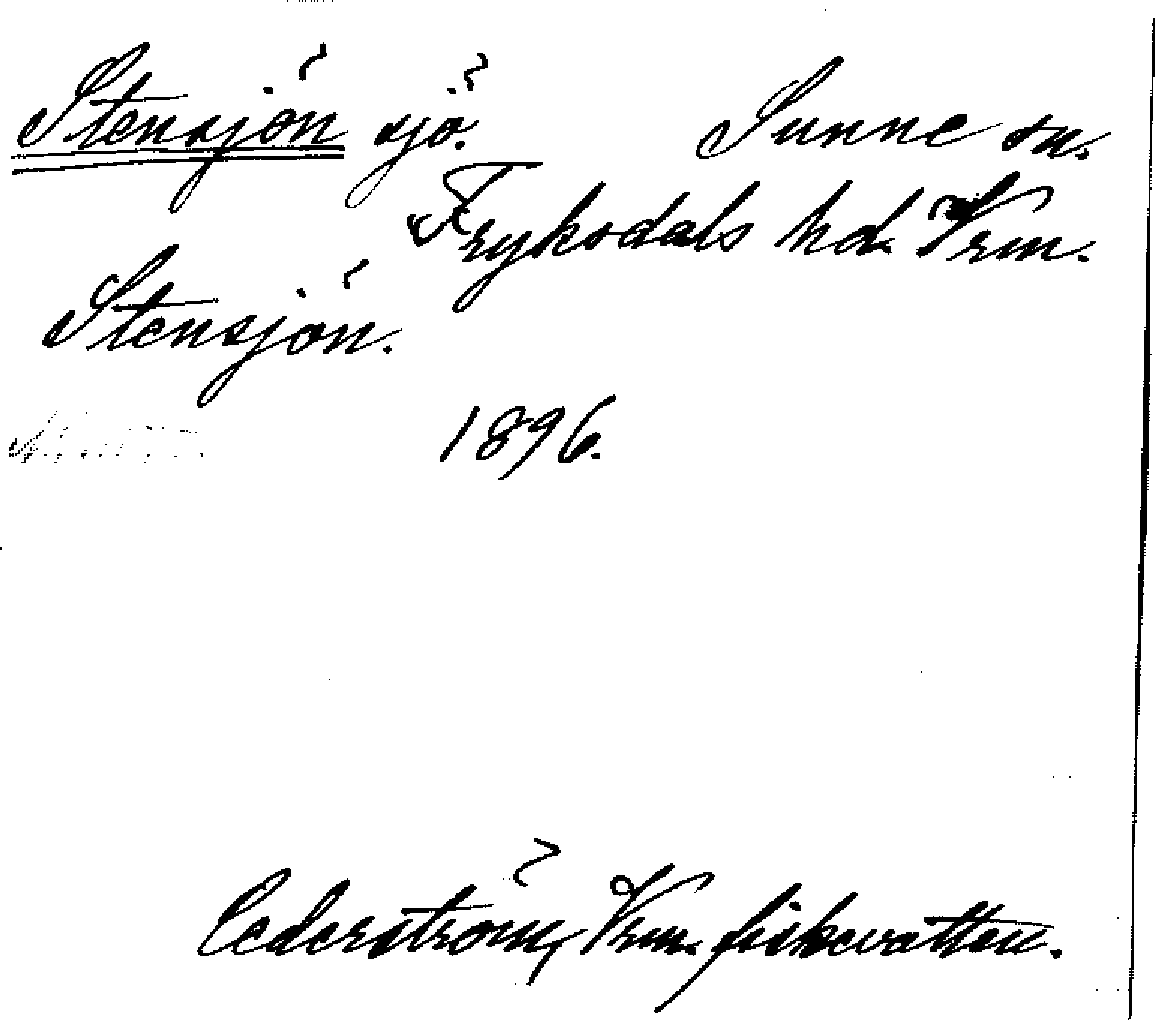 Stensjön sjö. Sunne sn.
Fryksdals hd. Vrm.
Stensjön.
1896.
Cederström, Vrm. fiskevatten.